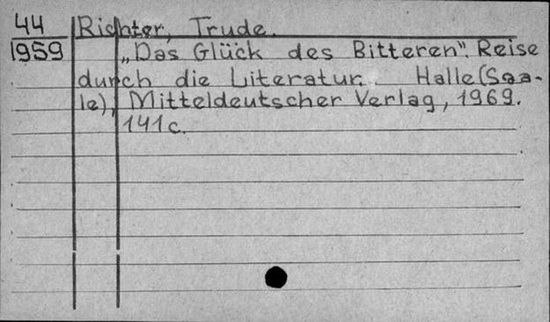 44 Richter, Trude.
1959 „Das Glück des Bitteren“. Reise
durch die Literatur. Halle (Saa-
le), Mitteldeutscher Verlag, 1969.
141 c.